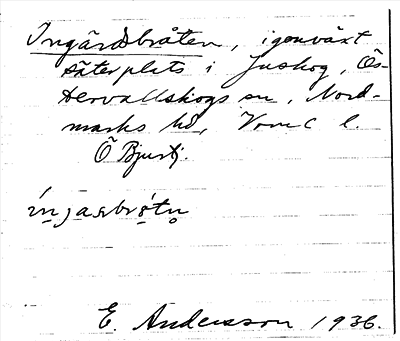 Ingärdsbråten, igenväxt
säterplats i Juskog, Ös-
tervallskogs sn, Nord-
marks hd, Värml l.
Ö Bjurbj.
E. Andersson 1936.